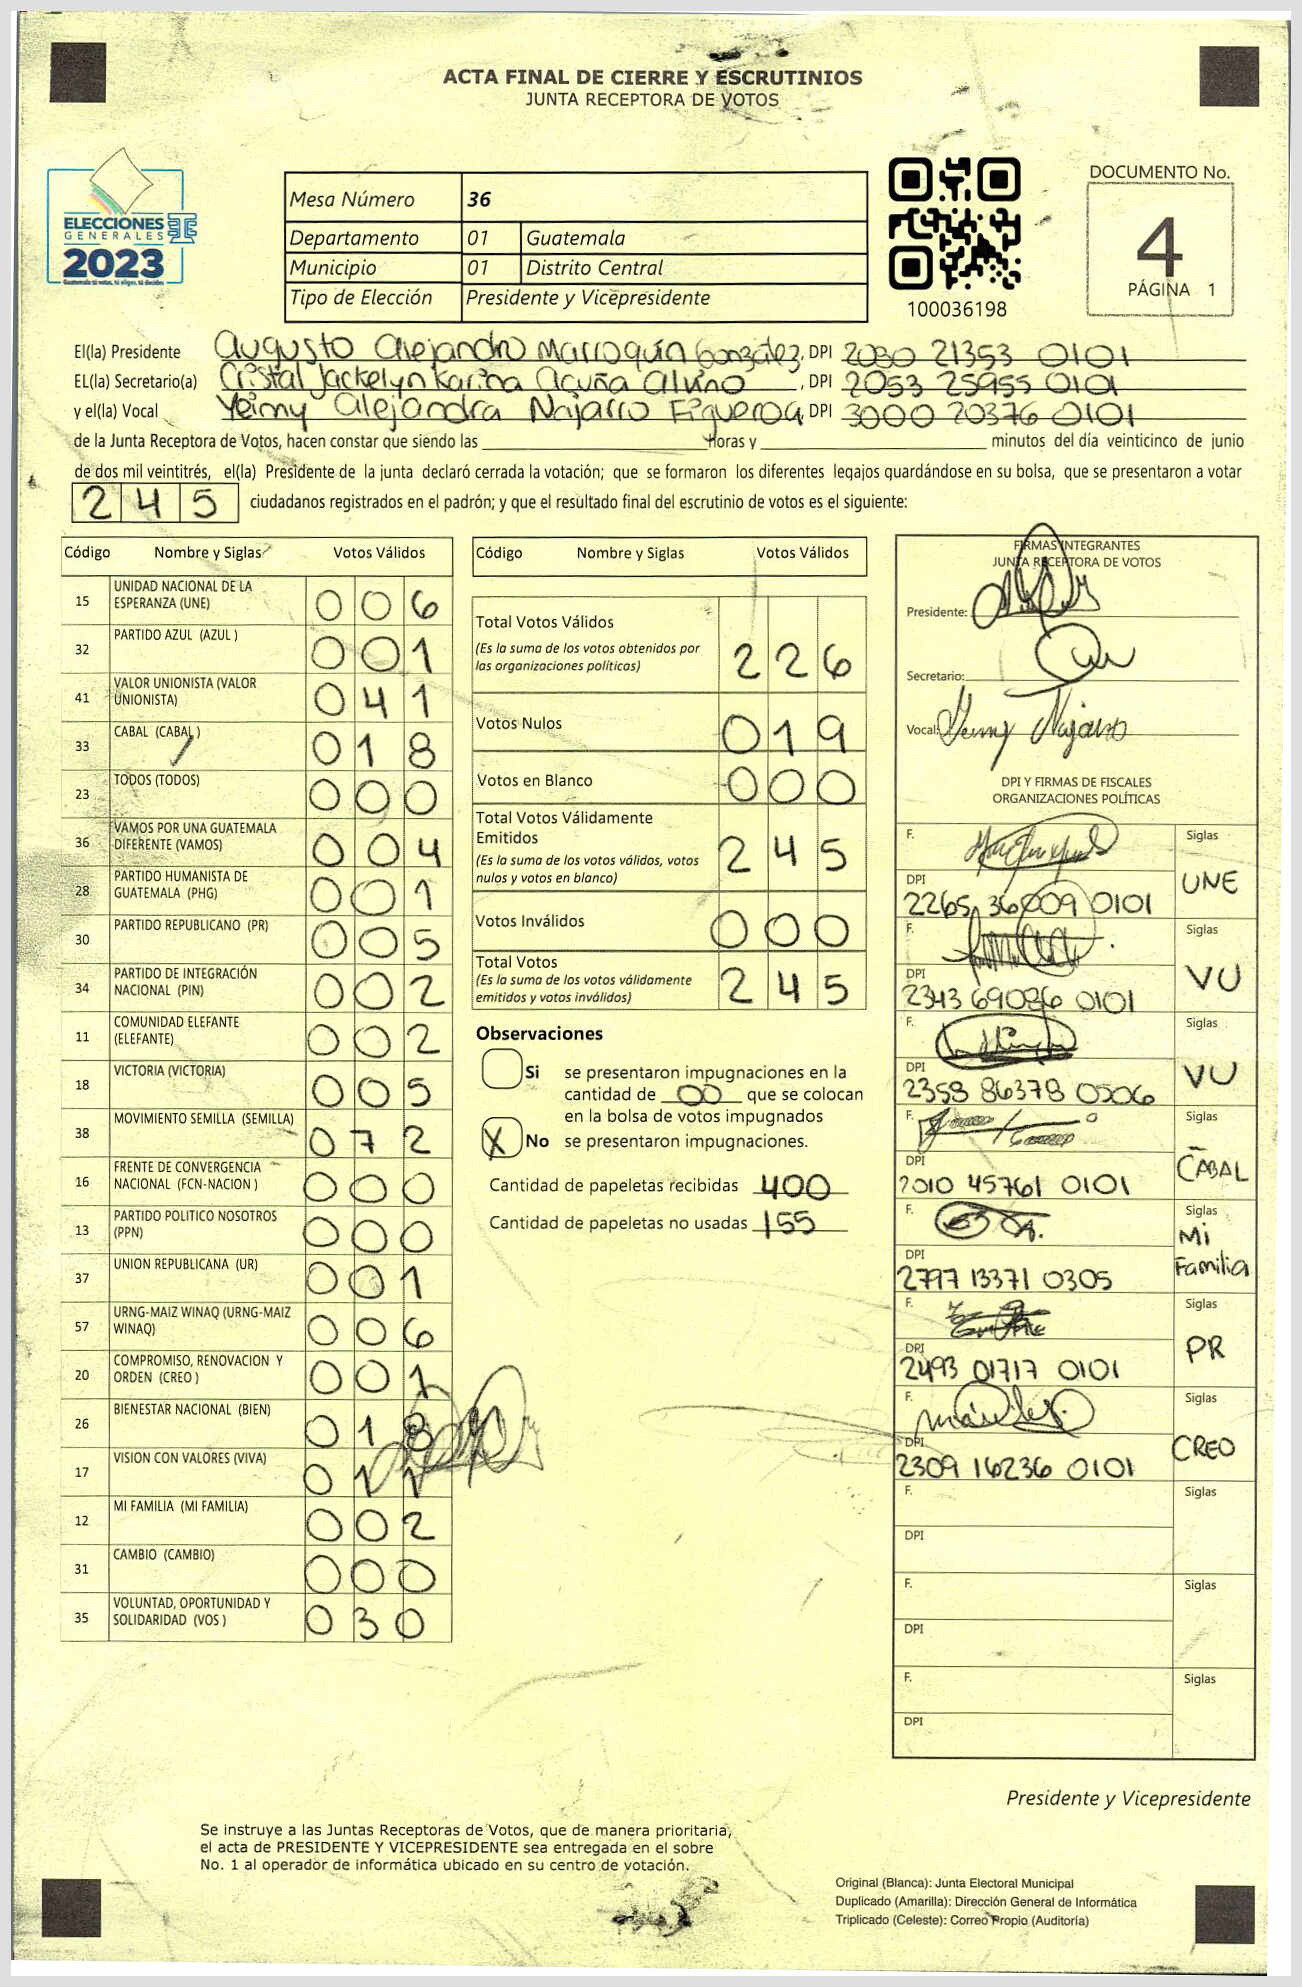 ACTA FINAL DE CIERRE Y ESCRUTINIOS
JUNTA RECEPTORA DE VOTOS
ELECCIONES
GENERALES
2023
Guatemala tú votas, tú eliges, tú decides
Mesa Número 36
Departamento 01 Guatemala
Municipio 01 Distrito Central
Tipo de Elección Presidente y Vicepresidente
100036198
DOCUMENTO No.
4
PÁGINA 1
El(la) Presidente Augusto Alejandro Marroquín González, DPI 2080 21353 0101
EL(la) Secretario(a) Cristal Jackelyn Karina Acuña, DPI 2053 25955 0101
y el(la) Vocal Yeimy Alejandra Najarro Figueroa, DPI 3000 20376 0101
de la Junta Receptora de Votos, hacen constar que siendo las Horas y minutos del día veinticinco de junio
de dos mil veintitrés, el(la) Presidente de la junta declaró cerrada la votación; que se formaron los diferentes legajos quardándose en su bolsa, que se presentaron a votar
245 ciudadanos registrados en el padrón; y que el resultado final del escrutinio de votos es el siguiente:
Código Nombre y Siglas Votos Válidos
15 UNIDAD NACIONAL DE LA ESPERANZA (UNE) 006
32 PARTIDO AZUL (AZUL ) 001
41 VALOR UNIONISTA (VALOR UNIONISTA) 041
33 CABAL (CABAL ) 018
23 TODOS (TODOS) 000
36 VAMOS POR UNA GUATEMALA DIFERENTE (VAMOS) 004
28 PARTIDO HUMANISTA DE GUATEMALA (PHG) 001
30 PARTIDO REPUBLICANO (PR) 005
34 PARTIDO DE INTEGRACIÓN NACIONAL (PIN) 002
11 COMUNIDAD ELEFANTE (ELEFANTE) 002
18 VICTORIA (VICTORIA) 005
38 MOVIMIENTO SEMILLA (SEMILLA) 072
16 FRENTE DE CONVERGENCIA NACIONAL (FCN-NACION ) 000
13 PARTIDO POLITICO NOSOTROS (PPN) 000
37 UNION REPUBLICANA (UR) 001
57 URNG-MAIZ WINAQ (URNG-MAIZ WINAQ) 006
20 COMPROMISO, RENOVACION Y ORDEN (CREO ) 001
26 BIENESTAR NACIONAL (BIEN) 018
17 VISION CON VALORES (VIVA) 011
12 MI FAMILIA (MI FAMILIA) 002
31 CAMBIO (CAMBIO) 000
35 VOLUNTAD, OPORTUNIDAD Y SOLIDARIDAD (VOS ) 030
Código Nombre y Siglas Votos Válidos
Total Votos Válidos 226
(Es la suma de los votos obtenidos por
las organizaciones políticas)
Votos Nulos 019
Votos en Blanco 000
Total Votos Válidamente
Emitidos 245
(Es la suma de los votos válidos, votos
nulos y votos en blanco)
Votos Inválidos 000
Total Votos 245
(Es la suma de los votos válidamente
emitidos y votos inválidos)
Observaciones
Si se presentaron impugnaciones en la
cantidad de 00 que se colocan
en la bolsa de votos impugnados
X No se presentaron impugnaciones.
Cantidad de papeletas recibidas 400
Cantidad de papeletas no usadas 155
FIRMAS INTEGRANTES
JUNTA RECEPTORA DE VOTOS
Presidente:
Secretario:
Vocal: Yeimy Najarro
DPI Y FIRMAS DE FISCALES
ORGANIZACIONES POLÍTICAS
F. Siglas
DPI UNE
2265 36009 0101
F. Siglas
DPI VU
2343 69086 0101
F. Siglas
DPI VU
2358 86378 0506
F. Siglas
DPI CABAL
2010 45761 0101
F. Siglas
DPI Mi Familia
2797 13371 0305
F. Siglas
DPI PR
2493 01717 0101
F. Siglas
DPI CREO
2309 16236 0101
F. Siglas
DPI
F. Siglas
DPI
F. Siglas
DPI
Presidente y Vicepresidente
Se instruye a las Juntas Receptoras de Votos, que de manera prioritaria,
el acta de PRESIDENTE Y VICEPRESIDENTE sea entregada en el sobre
No. 1 al operador de informática ubicado en su centro de votación.
Original (Blanca): Junta Electoral Municipal
Duplicado (Amarilla): Dirección General de Informática
Triplicado (Celeste): Correo Propio (Auditoría)